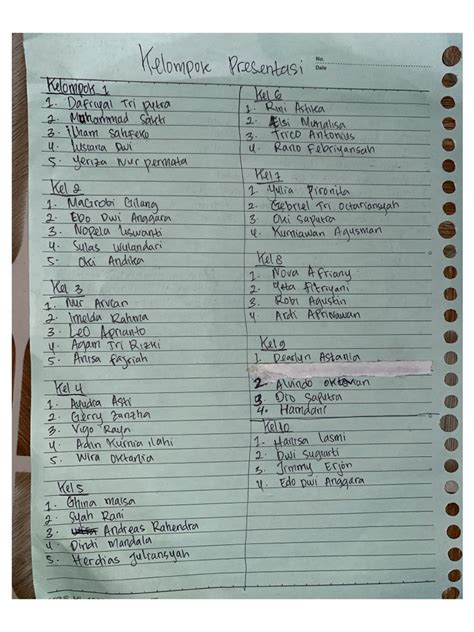 Kelompok Presentasi
No.
Date
Kelompok 1
1. Dafriyal Tri putra
2. Muhammad Sakti
3. ilham Sahfeko
4. Lusiana Dwi
5. Yeriza Nur permata
Kel 2
1. Macirobi Gilang
2. Edo Dwi Anggara
3. Nopela Liswanti
4. Sulas wulandari
5. Oki Andika
Kel 3
1. Nur Arvian
2. imelda Rahma
3. Leo Aprianto
4. Agam Tri Rizki
5. Anisa Fajriah
Kel 4
1. Ayudra Asti
2. Gerry Zanzha
3. Vigo Rayn
4. Adin Kurnia ilahi
5. Wira oktania
Kel 5
1. Ghina maisa
2. Syah Rani
3. Andreas Rahendra
4. Dindi mandala
5. Herdias Juliansyah
Kel 6
1. Rini Astika
2. Elsi Munalisa
3. Trico Antonius
4. Rano Febriyansah
Kel 7
1. Yulia Pironita
2. Gebriel Tri Octariansyah
3. Oki saputra
4. Kurniawan Agusman
Kel 8
1. Nova Afriany
2. Yeta fitriyani
3. Robi Agustin
4. Ardi Apriawan
Kel 9
1. Dearlyn Astania
2. Alvindo oktoman
3. Dio Saputra
4. Hamdani
Kel 10
1. Harisa Lasmi
2. Dwi sugiarti
3. Jimmy Erjon
4. Edo Dwi Anggara